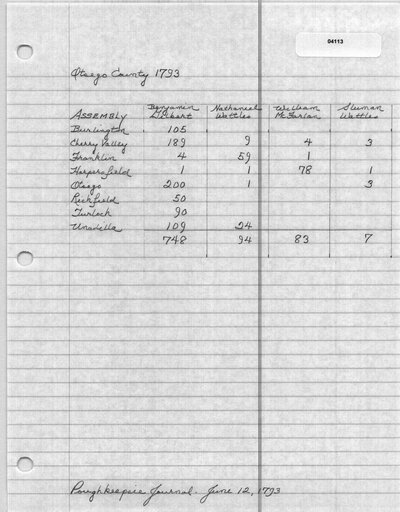 04113
Otsego County 1793
ASSEMBLY Benjamin Gilbert Nathaniel Wattles William McFarlan Sluman Wattles
Burlington 105
Cherry Valley 189 9 4 3
Franklin 4 59 1
Harpersfield 1 1 78 1
Otsego 200 1 3
Richfield 50
Turloch 90
Unadilla 109 24
748 94 83 7
Poughkeepsie Journal. June 12, 1793